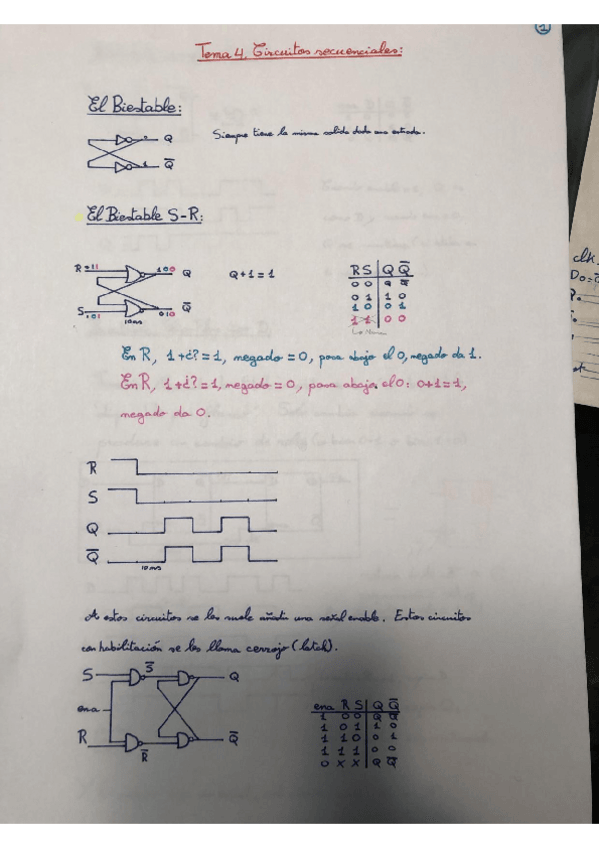 1
Tema 4. Circuitos secuenciales:
El Biestable:
Q
Siempre tiene la misma salida dado un estado.
1 Q̅
El Biestable S-R:
clk
R=011 100 Q Q+1=1 R S Q Q̅
0 0 Q Q̅
0 1 1 0
S=101 010 Q̅ 1 0 0 1
10ns 1 1 0 0
En R, 1+¿?=1, negado=0, para abajo el 0, negado da 1.
En R, 1+¿?=1, negado=0, para abajo el 0: 0+1=1,
negado da 0.
R
S
Q
Q̅
10ns
A estos circuitos se les suele añadir una señal enable. Estos circuitos
con habilitación se les llama cerrojo (latch).
S S̅ Q
ena
R R̅ Q̅
ena R S Q Q̅
1 0 0 Q Q̅
1 0 1 1 0
1 1 0 0 1
1 1 1 0 0
0 X X Q Q̅